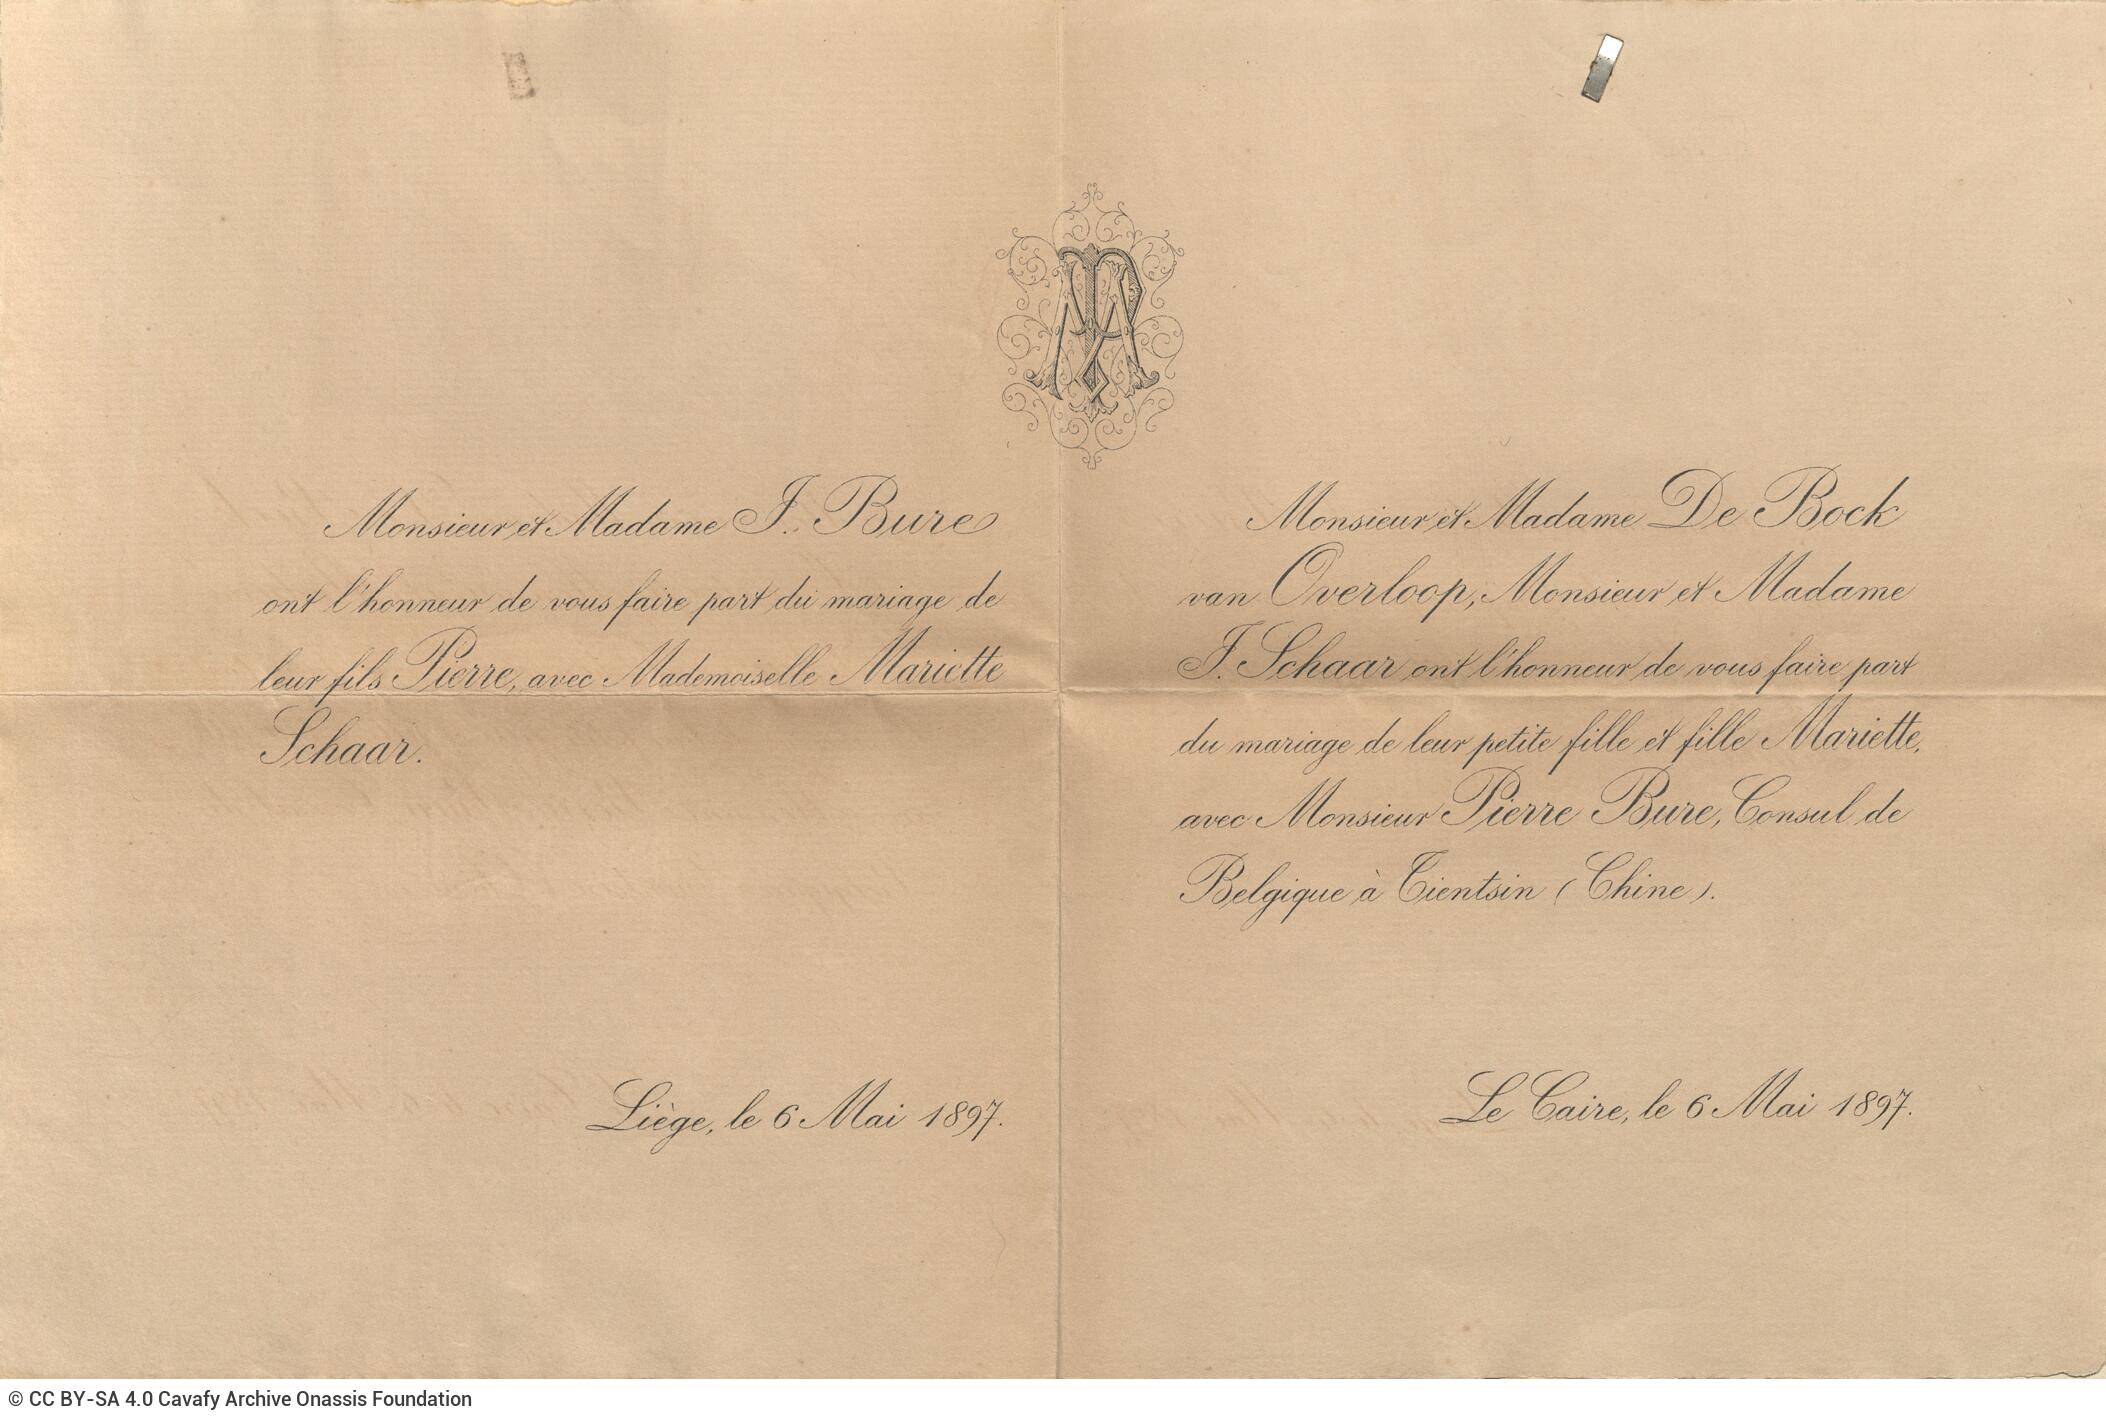 Monsieur et Madame J. Bure
ont l'honneur de vous faire part du mariage de
leur fils Pierre, avec Mademoiselle Mariette
Schaar.
Liège, le 6 Mai 1897.
Monsieur et Madame De Bock
van Overloop, Monsieur et Madame
J. Schaar ont l'honneur de vous faire part
du mariage de leur petite fille et fille Mariette,
avec Monsieur Pierre Bure, Consul de
Belgique à Tientsin (Chine).
Le Caire, le 6 Mai 1897.
© CC BY-SA 4.0 Cavafy Archive Onassis Foundation